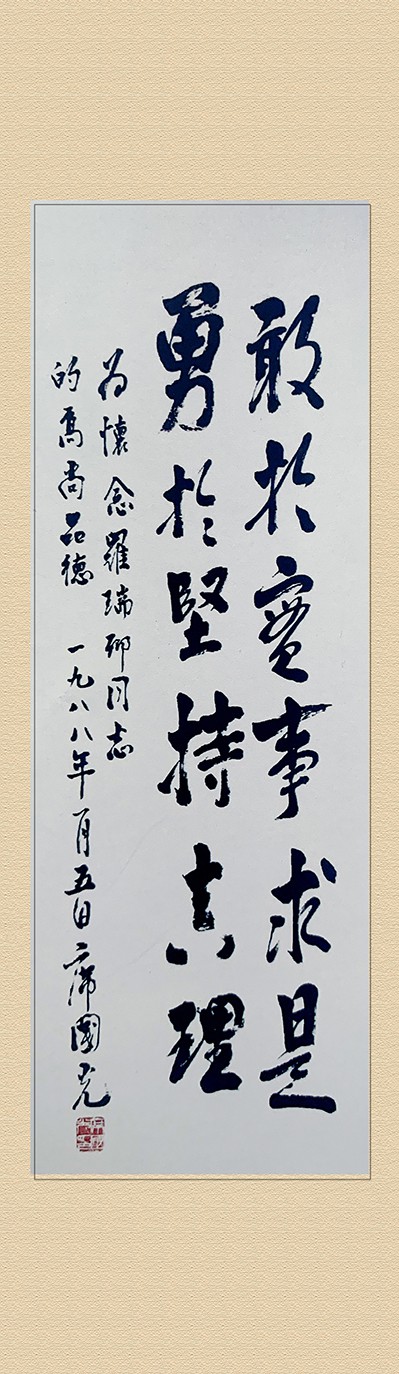 敢於實事求是
勇於堅持真理
為懷念羅瑞卿同志
的高尚品德 一九八八年一月五日 席國光